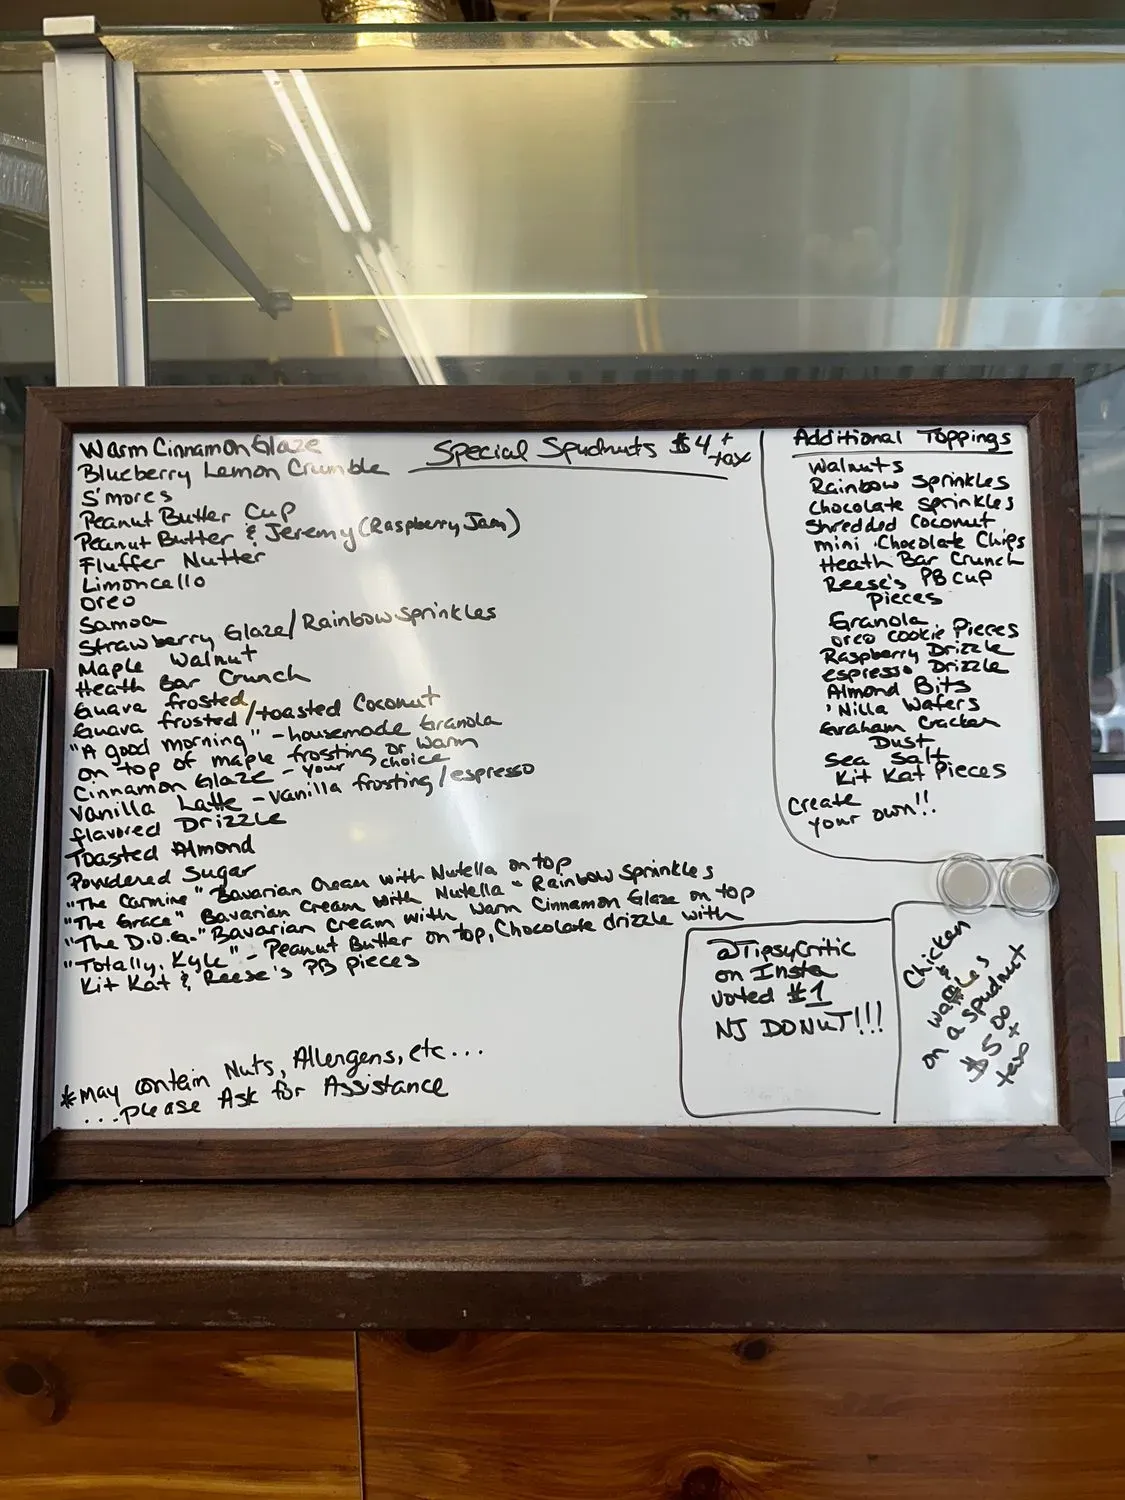 Special Spudnuts $4 + tax
Warm Cinnamon Glaze
Blueberry Lemon Crumble
S'mores
Peanut Butter Cup
Peanut Butter & Jeremy (Raspberry Jam)
Fluffer Nutter
Limoncello
Oreo
Samoa
Strawberry Glaze/Rainbow Sprinkles
Maple Walnut
Heath Bar Crunch
Guava frosted
Guava frosted/toasted Coconut
"A good morning" - housemade Granola
on top of maple frosting or warm
Cinnamon Glaze - your choice
Vanilla Latte - vanilla frosting/espresso
flavored Drizzle
Toasted Almond
Powdered Sugar
"The Carmine" Bavarian Cream with Nutella on top
"The Grace" Bavarian Cream with Nutella - Rainbow Sprinkles
"The D.O.G." Bavarian Cream with Warm Cinnamon Glaze on top
"Totally, Kyle" - Peanut Butter on top, Chocolate drizzle with
Kit Kat & Reese's PB pieces
*May contain Nuts, Allergens, etc...
...please Ask for Assistance
Additional Toppings
Walnuts
Rainbow Sprinkles
Chocolate Sprinkles
Shredded Coconut
mini Chocolate Chips
Heath Bar Crunch
Reese's PB Cup
Pieces
Granola
oreo cookie Pieces
Raspberry Drizzle
espresso Drizzle
Almond Bits
'Nilla Wafers
Graham Cracker
Dust
Sea Salt
Kit Kat Pieces
Create
your own!!
@TipsyCritic
on Insta
voted #1
NJ DONUT!!!
Chicken
&
waffles
on a spudnut
$5.00
+
tax